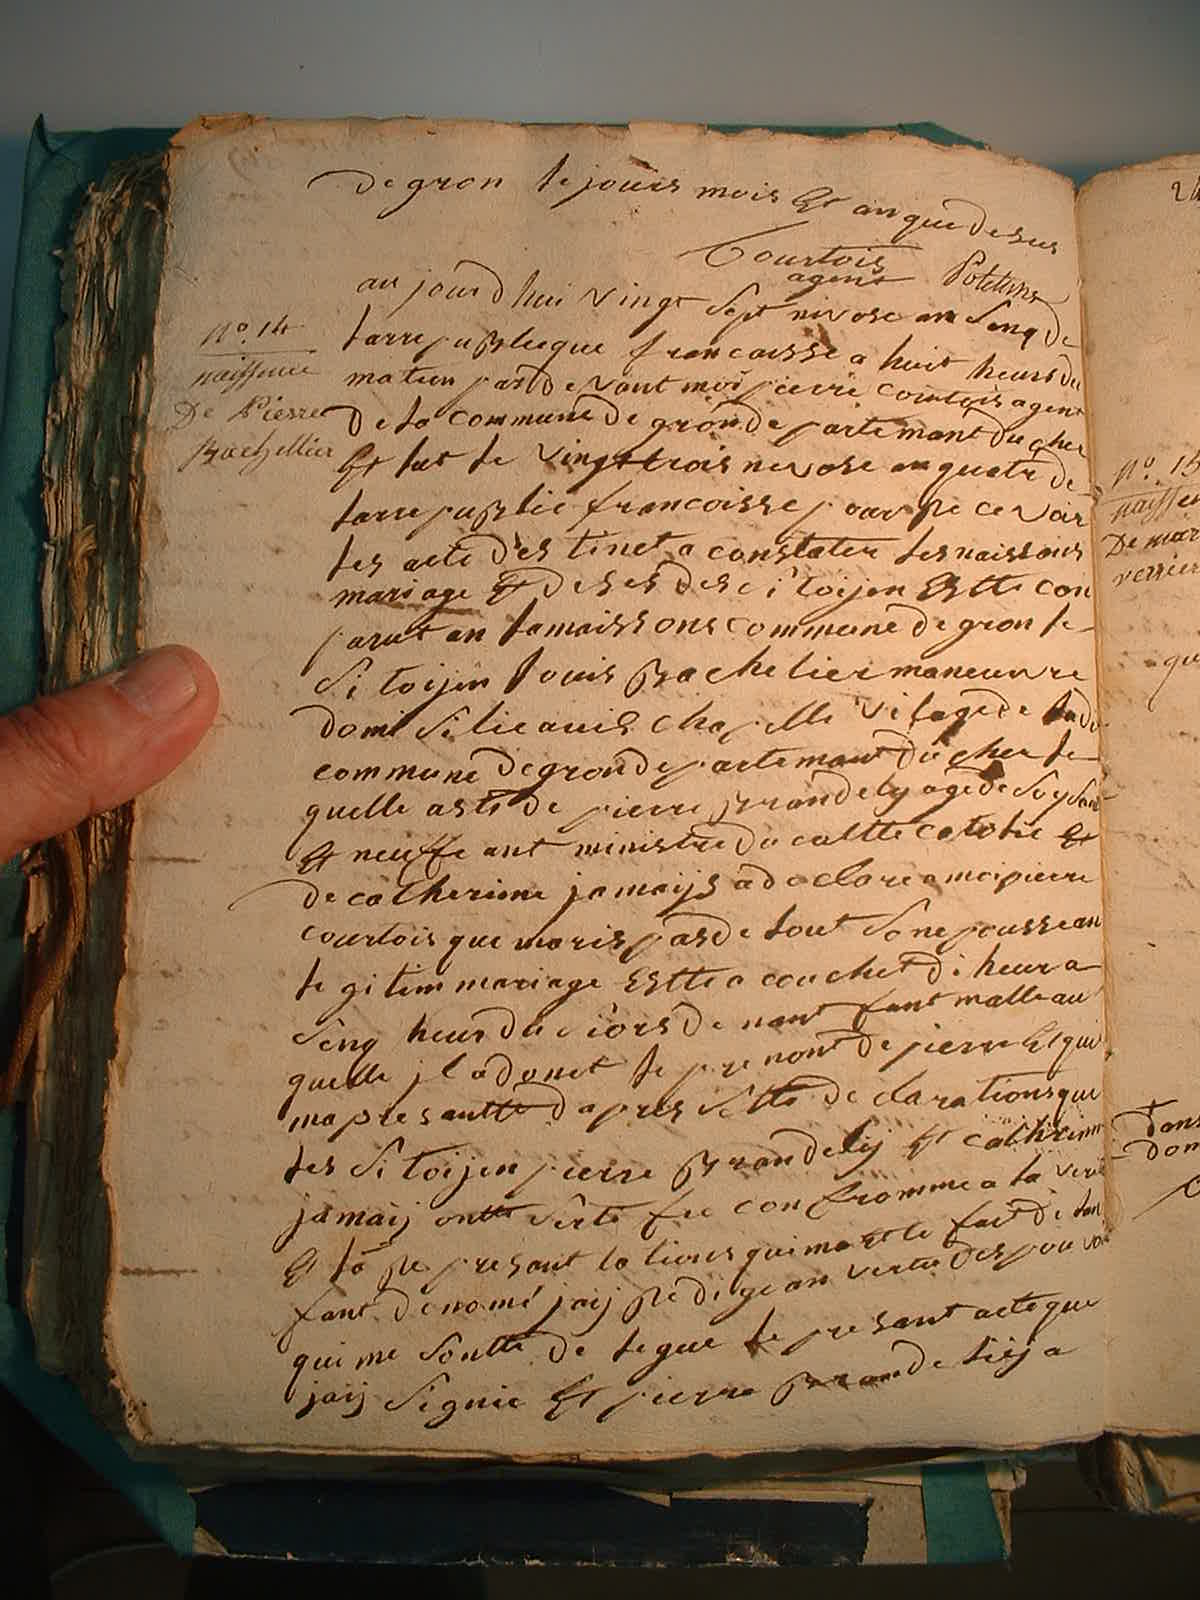 de gron le jours mois Et an que desus
Courtois
agent
au jourd hui vingt sept nivose an sinq de
No. 14
naissance
De Pierre
Bachellier
larrepublieque francaisse a huit heurs du
matien par devant moi pierre courtois agent
de la commune de gron departemant du cher
Et lut le vingt trois nevose an quatr de
larrepublic francoisse pour Re ce voir
les acte des tinet a constater les naissans
mariage Et deses des sitoijen Estte con
parut an lamaissons commune de gron le
sitoijen louis Bachelier maneuvre
domisilie
commune de gron departemant du cher le
quelle aste de pierre Brandely age de
Et neuffe ant ministre du caltte catolic Et
de catherine jamaijs a declare a moi pierre
courtois que maris pasde tout son epousse an
legitim mariage Estte a couchet di heur a
sinq heur du de nant fant malle au
quelle jl a donet le pre nom de pierre Et qui
ma pre santte dapres sette declarations que
les sitoijen pierre Brandelij Et catherinne
jamaij ontte sertifee confromme a la veri
Et la Re presant la tions qui ma ette fait de lan
fant denomé jaij Redige an vertu des pou voi
qui me sontte de legue le presant acte que
jaij signie Et pierre Brandelij a
No. 15